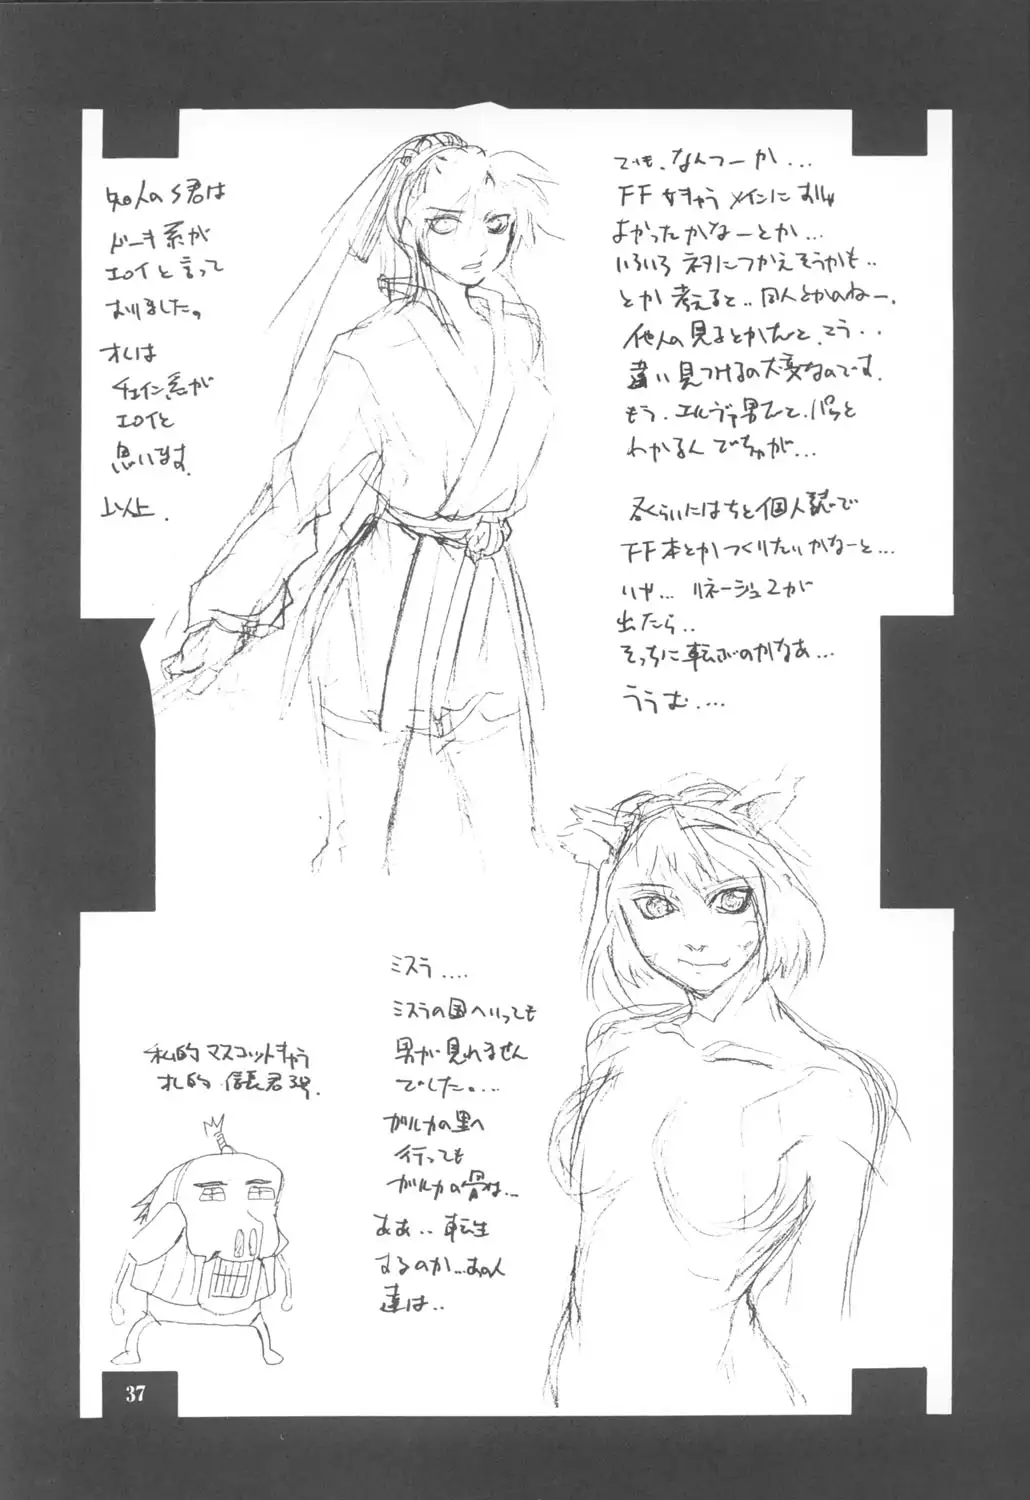 知人のS君は
ドーギ系が
エロイと言って
おりました。
オレは
チェイン系が
エロイと
思います。
以上.
でも、なんつーか...
FF 女キャラ メインにすりゃ
よかったかなーとか...
いろいろ ネタにつかえそうかも..
とか 考えると.. 同人とかのねー.
他人の見るとかんと、こう..
違い見つけるの大変なのです.
もう、エルヴァ男ひと、パッと
わかるんでちゅが...
冬くらいにはちと個人誌で
FF本とかつくりたいかなーと...
いや... リネージュ2が
出たら..
そっちに転ぶのかなあ...
ううむ....
ミスラ....
ミスラの国へいっても
男が見れません
でした....
ガルカの里へ
行っても
ガルカの骨は...
ああ.. 転生
するのか...あの人
達は..
私的 マスコットキャラ
オレ的 信長君3号.
37